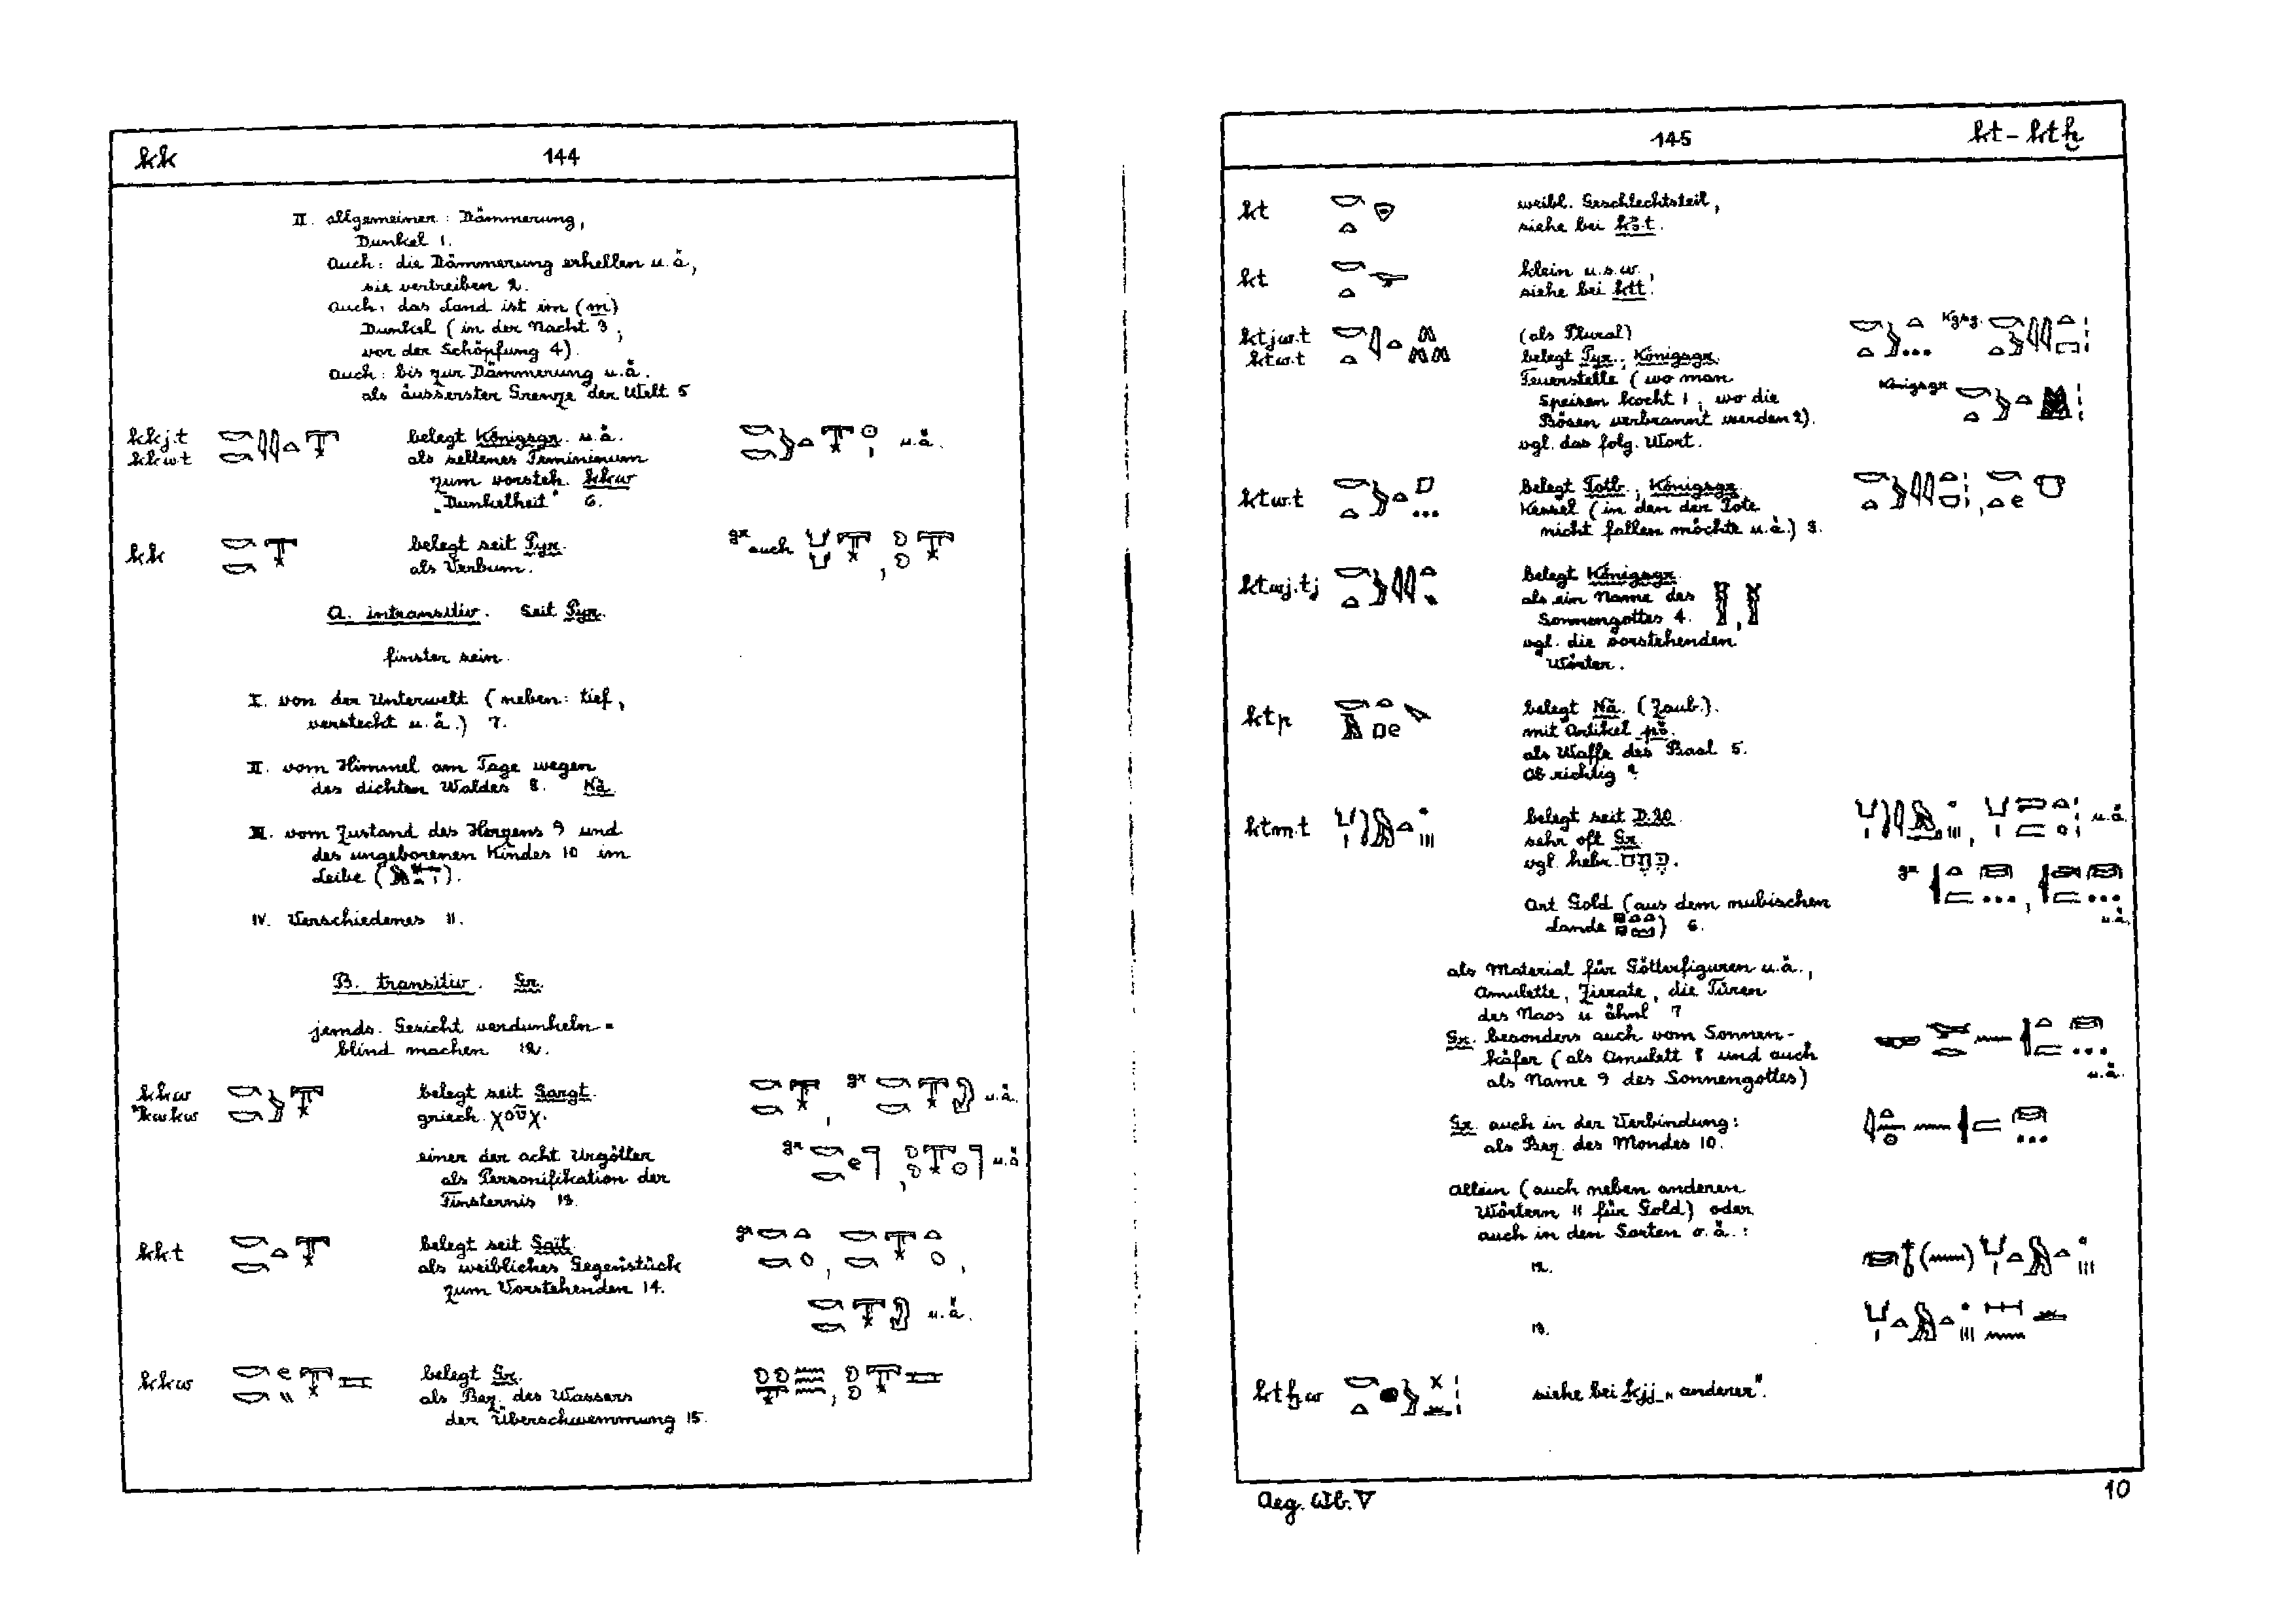 kk 144
II. allgemeiner: Dämmerung,
Dunkel 1.
Auch: die Dämmerung erhellen u.ä,
sie vertreiben 2.
Auch: das Land ist im (m)
Dunkel (in der Nacht 3,
vor der Schöpfung 4).
Auch: bis zur Dämmerung u.ä.
als äusserster Grenze der Welt 5
kkj.t
kkw.t
belegt Königsgr. u.ä.
als seltenes Femininum
zum vorsteh. kkw
"Dunkelheit" 6.
u.ä.
kk
belegt seit Pyr.
als Verbum.
gr auch
A. intransitiv. Seit Pyr.
finster sein.
I. von der Unterwelt (neben: tief,
versteckt u.ä.) 7.
II. vom Himmel am Tage wegen
des dichten Waldes 8. Nä.
III. vom Zustand des Herzens 9 und
des ungeborenen Kindes 10 im
Leibe ( ).
IV. Verschiedenes 11.
B. transitiv. Gr.
jemds. Gesicht verdunkeln =
blind machen 12.
kkw
*kwkw
belegt seit Sargt.
griech. χοῦχ.
gr u.ä.
einer der acht Urgötter
als Personifikation der
Finsternis 13.
gr u.ä
kk.t
belegt seit Sait.
als weibliches Gegenstück
zum Vorstehenden 14.
gr
u.ä.
kkw
belegt Gr.
als Bez. des Wassers
der Überschwemmung 15.
145 kt – ktḫ
kt
weibl. Geschlechtsteil,
siehe bei kꜣ.t.
kt
klein u.s.w.,
siehe bei ktt.
ktjw.t
ktw.t
(als Plural)
belegt Pyr.; Königsgr.
Feuerstelle (wo man
Speisen kocht 1, wo die
Bösen verbrannt werden 2).
vgl. das folg. Wort.
Kgsg.
Königsgr
ktw.t
belegt Totb.; Königsgr.
Kessel (in den der Tote
nicht fallen möchte u.ä.) 3.
ktwj.tj
belegt Königsgr.
als ein Name des
Sonnengottes 4.
vgl. die vorstehenden
Wörter.
ktp
belegt Nä. (Zaub.).
mit Artikel pꜣ.
als Waffe des Baal 5.
Ob richtig?
ktm.t
belegt seit D.20.
sehr oft Gr.
vgl. hebr. כתם.
u.ä.
gr
u.ä.
Art Gold (aus dem nubischen
Lande ) 6.
als Material für Götterfiguren u.ä.,
Amulette, Zierate, die Türen
des Naos u ähnl 7
Gr. besonders auch vom Sonnen-
käfer (als Amulett 8 und auch
als Name 9 des Sonnengottes)
u.ä.
Gr. auch in der Verbindung:
als Bez. des Mondes 10.
Allein (auch neben anderen
Wörtern 11 für Gold) oder
auch in den Sorten o.ä.:
12.
13.
ktḫw
siehe bei kjj "anderer".
Aeg. Wb. V 10